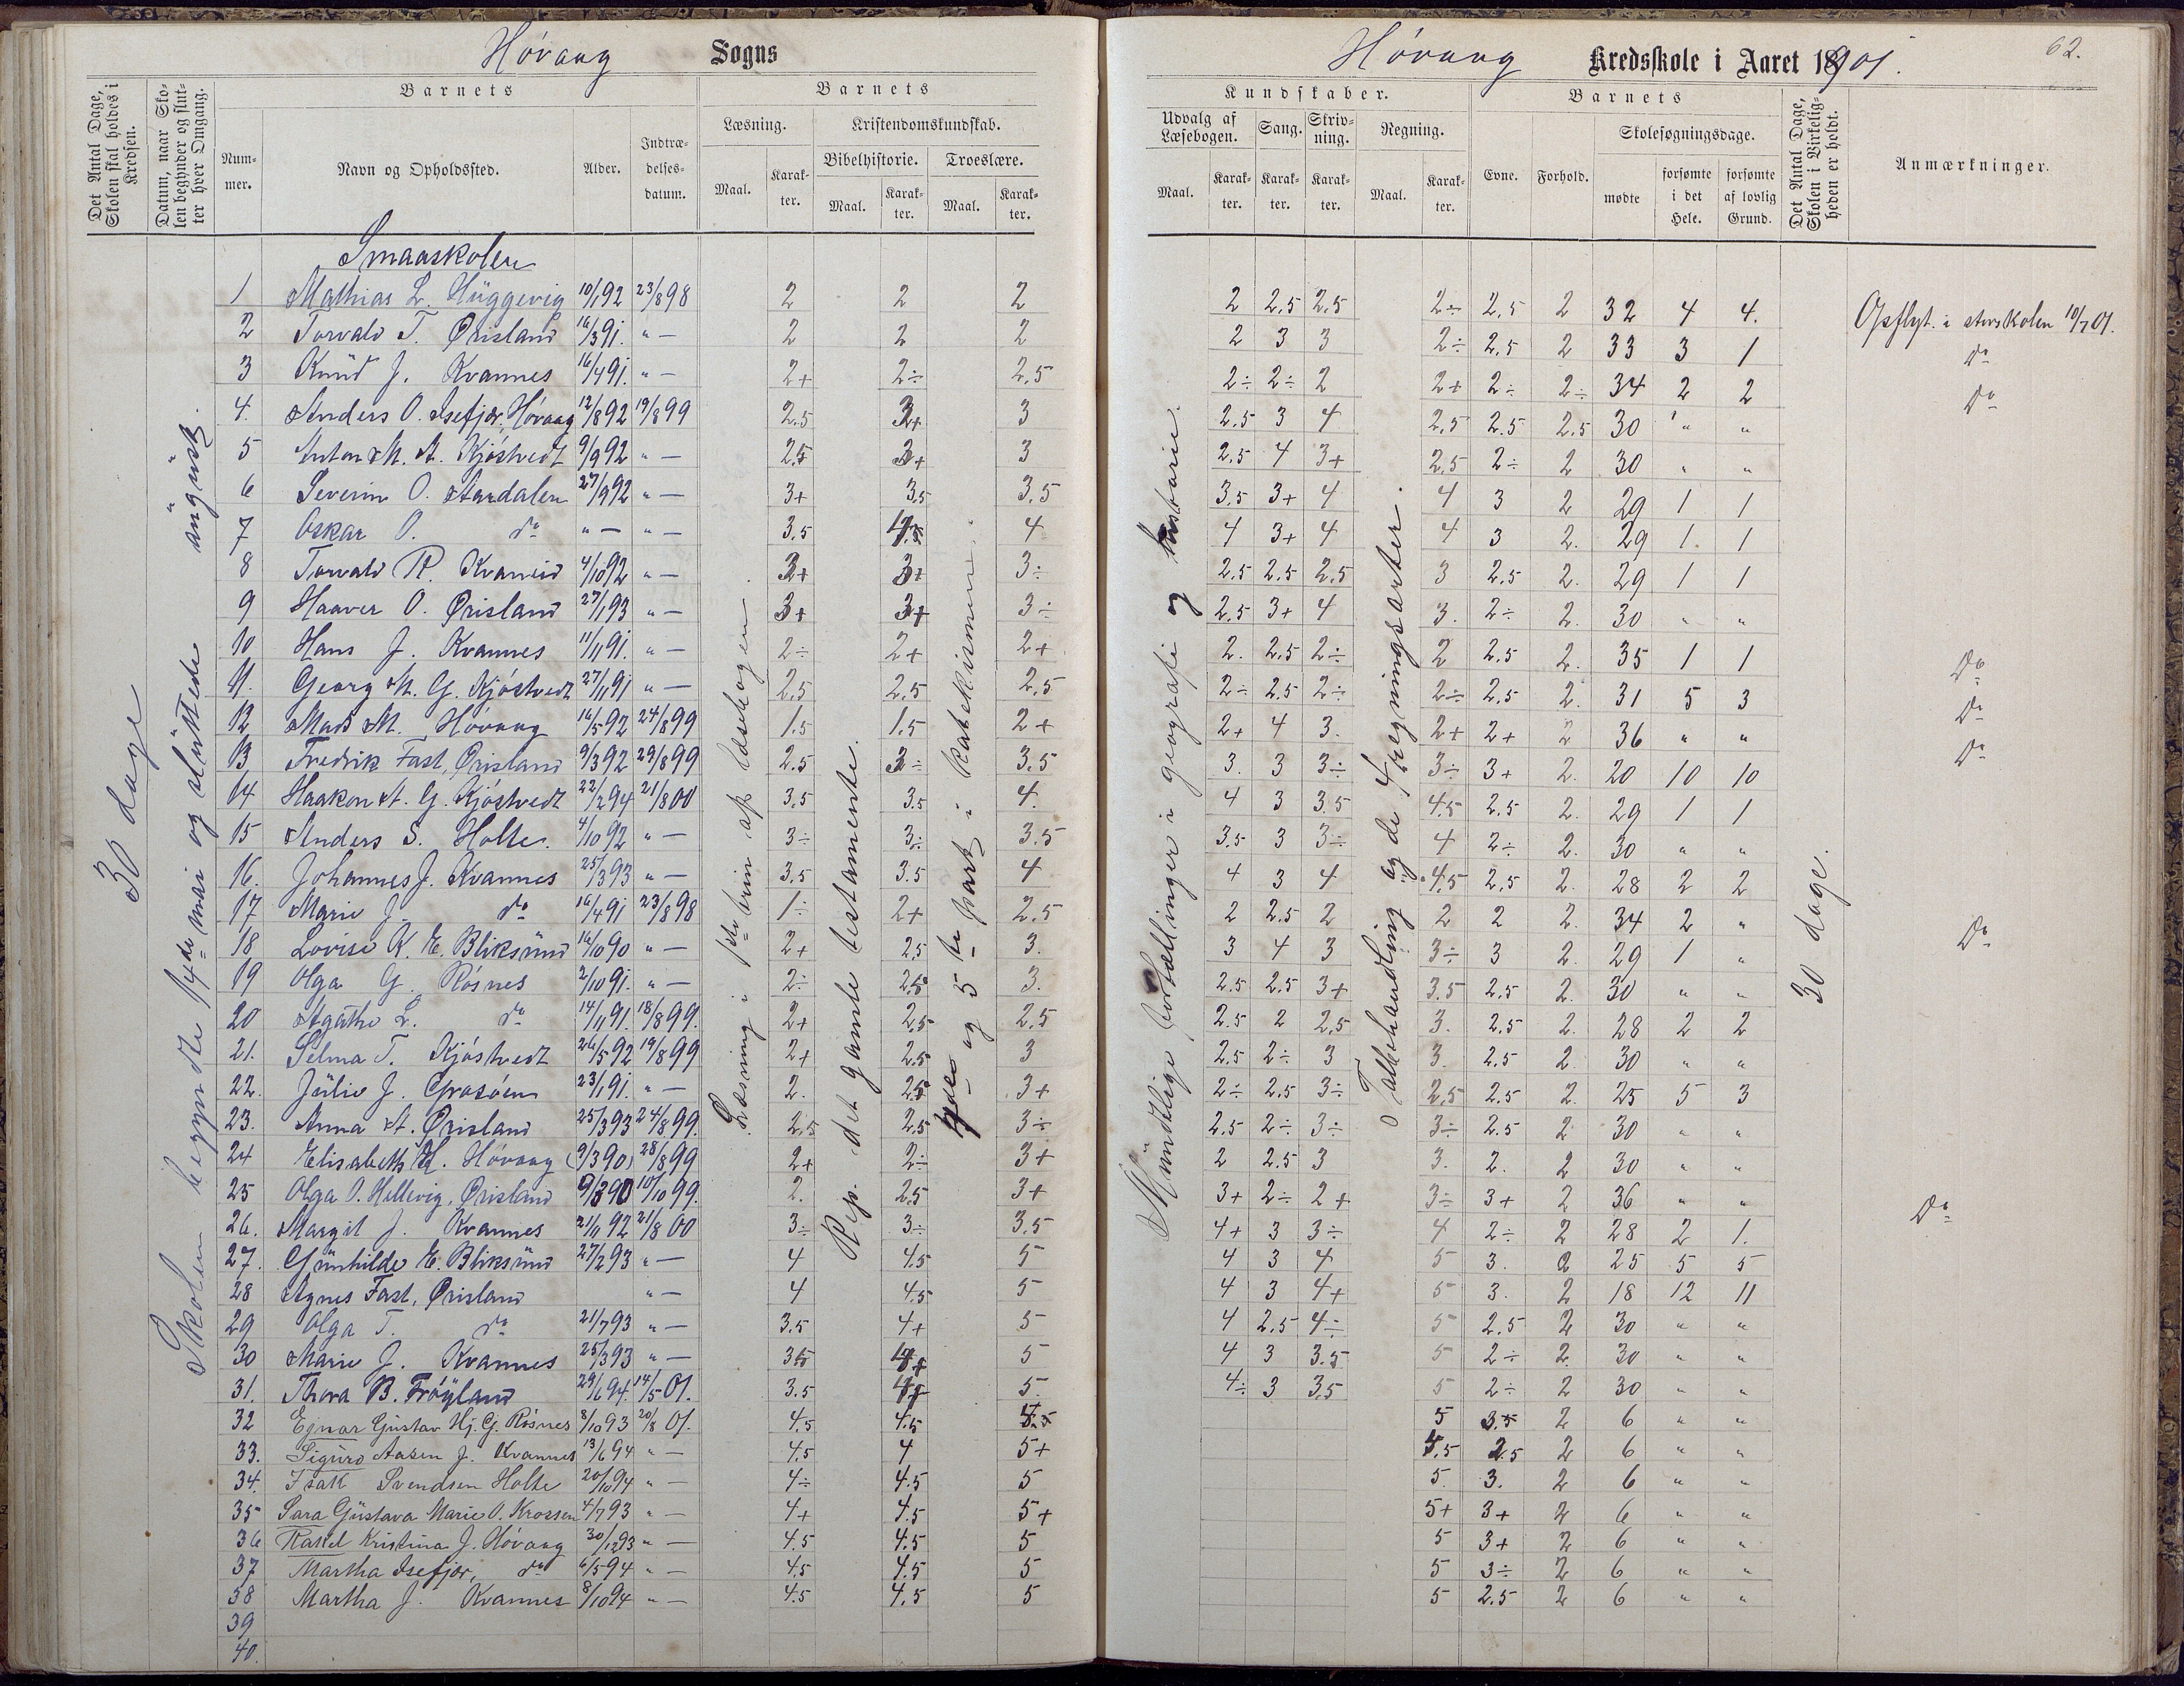 Hövaag Sogns
Det Antal Dage, Skolen skal holdes i Kredsen.
Datum, naar Skolen begynder og slutter hver Omgang.
Barnets
Barnets
Nummer.
Navn og Opholdssted.
Alder.
Indtrædelsesdatum.
Læsning.
Kristendomskundskab.
Maal.
Karakter.
Bibelhistorie.
Troeslære.
Maal.
Karakter.
Maal.
Karakter.
30 dage
Skolen begyndte 14de mai og sluttede
Læsning i 1ste trin af læsebogen.
Rep. det gamle testamente.
og 5te part i katekismen.
Smaaskolen
1 Mathias L. Hüggevig 10/1 92 23/8 98 2 2 2
2 Torvald T. Örisland 16/3 91. " — 2 2 2
3 Knud J. Kvannes 16/4 91. " — 2+ 2÷ 2,5
4. Anders O. Isefjær, Hövaag 12/8 92 19/8 99 2.5 3+ 3
5 Anton M. A. Kjöstvedt 9/9 92 " — 2,5 3+ 3
6 Severin O. Aardalen 27/9 92 " — 3+ 3,5 3,5
7 Oskar O. do " — " — 3,5 4
8 Torvald R. Kvaneid 4/10 92 " — 3+ 3+ 3÷
9 Haaver O. Örisland 27/1 93 " — 3+ 3+ 3÷
10 Hans J. Kvannes 11/11 91. " — 2÷ 2+ 2+
11. Georg M. G. Kjöstvedt 27/11 91 " — 2,5 2,5 2,5
12 Mads M. Hövaag 16/5 92 24/8 99 1.5 1.5 2+
13 Fredrik Fast, Örisland 9/3 92 29/8 99 2.5 3÷ 3.5
14 Haakon A. G. Kjöstvedt 22/2 94 21/8 00 3,5 3.5 4.
15 Anders S. Holte. 4/10 92 " — 3÷ 3÷ 3.5
16. Johannes J. Kvannes 25/3 93 " — 3,5 3.5 4
17 Marie J. do 16/4 91 23/8 98 1÷ 2+ 2.5
18 Lovise K. E. Bliksund 16/10 90 " — 2+ 2,5 3.
19 Olga G. Rösnes 2/10 91. " — 2÷ 2,5 3.
20 Agathe L. do 14/11 91. 18/8 99. 2+ 2,5 2,5
21. Selma T. Kjöstvedt 26/5 92 19/8 99 2+ 2.5 3
22. Julie J. Grosöen 23/1 91. " — 2. 2.5 3+
23. Anna A. Örisland 25/3 93 24/8 99. 2,5 2,5 3÷
24 Elisabeth H. Hövaag (9/3 90) 28/8 99 2+ 2÷ 3+
25 Olga O. Hellevig, Örisland 9/3 90 10/10 99. 2. 2.5 3+
26. Margit J. Kvannes 21/11 92 21/8 00 3÷ 3÷ 3.5
27. Gunhilde E. Bliksund 27/2 93 " — 4 4.5 5
28 Agnes Fast, Örisland " — 4 4.5 5
29 Olga T. do 21/7 93 " — 3.5 4+ 5
30 Marie J. Kvannes 25/3 93 " — 3,5 4+ 5
31. Thora B. Fröyland 29/6 94. 14/5 01. 3.5 5.
32 Ejnar Gustav Hj. G. Rösnes 8/10 93 20/8 01. 4.5 4.5
33. Sigurd Aasen J. Kvannes 13/6 94 " — 4.5 4 5+
34. Isak Svendsen Holte 20/10 94 " — 4÷ 4.5 5
35 Sara Gustava Marie O. Krossen 4/7 93 " — 4+ 4.5 5+
36 Rakel Kristina J. Hövaag 30/12 93 " — 4.5 4.5 5
37 Martha Isefjær, do 6/5 94 " — 4.5 4.5 5
38 Martha J. Kvannes 8/10 94 " — 4.5 4.5 5
39
40.
Hövaag Kredsskole i Aaret 1901.
62.
Kundskaber.
Barnets
Det Antal Dage, Skolen i Virkeligheden er holdt.
Anmærkninger.
Udvalg af Læsebogen.
Sang.
Skrivning.
Regning.
Evne.
Forhold.
Skolesøgningsdage.
Maal.
Karakter.
Karakter.
Karakter.
Maal.
Karakter.
mødte
forsømte i det Hele.
forsømte af lovlig Grund.
Mundtlige fortællinger i geografi og historie.
Talbehandling og de 4 regningsarter.
30 dage.
2 2,5 2,5 2÷ 2,5 2 32 4 4. Opflyt. i storskolen 10/7 01.
2 3 3 2÷ 2,5 2 33 3 1 do
2÷ 2÷ 2 2+ 2÷ 2÷ 34 2 2 do
2,5 3 4 2,5 2.5 2.5 30 " "
2,5 4 3+ 2,5 2÷ 2 30 " "
3,5 3+ 4 4 3 2 29 1 1
4 3+ 4 4 3 2. 29 1. 1
2,5 2,5 2,5 3 2,5 2. 29 1 1
2,5 3+ 4 3. 2÷ 2. 30 " "
2. 2,5 2÷ 2 2,5 2. 35 1 1 do
2÷ 2,5 2÷ 2÷ 2,5 2. 31 5 3 do
2+ 4 3. 2+ 2+ 2 36 " " do
3. 3 3÷ 3÷ 3+ 2. 20 10 10
4 3 3.5 4.5 2,5 2. 29 1 1
3.5 3 3÷ 4 2÷ 2. 30 " "
4 3 4 4.5 2,5 2. 28 2 2
2 2.5 2 2 2 2. 34 2 " do
3 4 3 3÷ 3 2. 29 1 "
2.5 2.5 3+ 3.5 2,5 2. 30 " "
2.5 2 2,5 3. 2.5 2. 28 2 2
2,5 2÷ 3 3. 2,5 2. 30 " "
2÷ 2,5 3÷ 2,5 2.5 2. 25 5 3
2.5 2÷ 3÷ 3÷ 2.5 2 30 " "
2 2.5 3 3. 2. 2 30 " "
3+ 2÷ 2+ 3÷ 3+ 2 36 " " do
4+ 3 3÷ 4 2÷ 2 28 2 1.
4 3 4 5 3. 2 25 5 5
4 3 4+ 5 3. 2 18 12 11
4 2,5 4÷ 5 2.5 2 30 " "
4 3 3.5 5 2÷ 2. 30 " "
4÷ 3 3,5 5 2÷ 2 30 " "
5 3.5 2 6 " "
2.5 2 6 " "
5. 3. 2 6 " "
5+ 3+ 2 6 " "
5 3+ 2 6 " "
5 3÷ 2 6 " "
5 2.5 2 6 " "